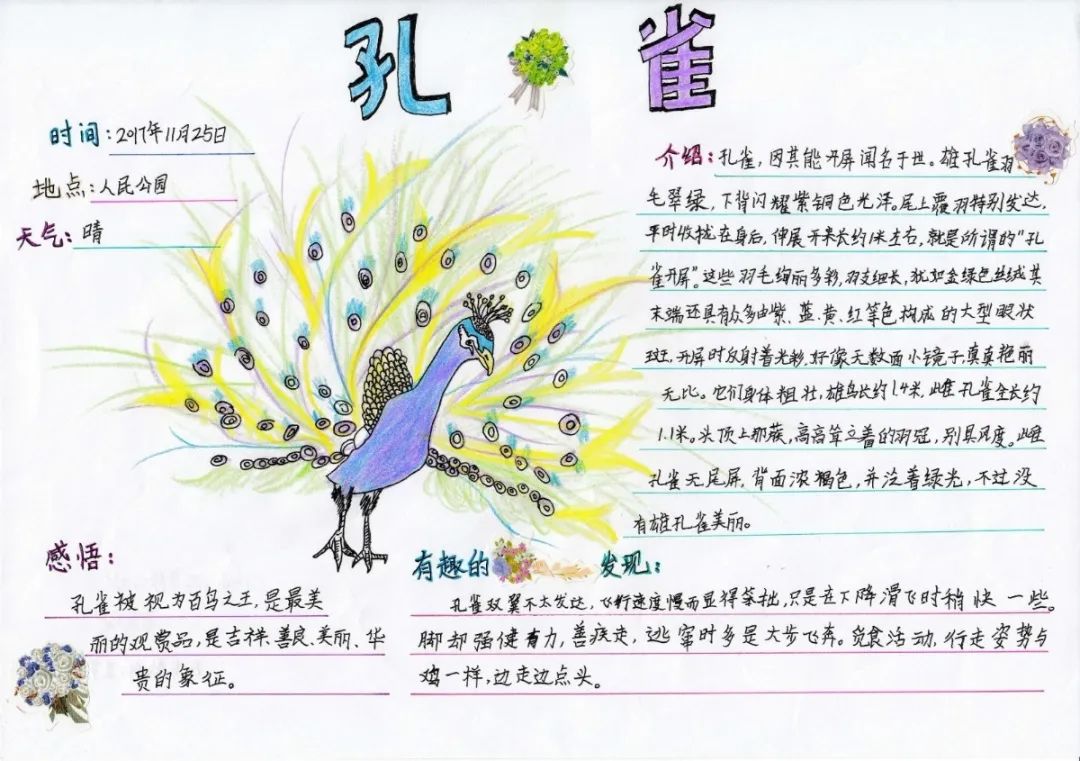 孔 雀
时间:2017年11月25日
地点:人民公园
天气:晴
介绍:孔雀,因其能开屏闻名于世。雄孔雀羽
毛翠绿,下背闪耀紫铜色光泽。尾上覆羽特别发达,
平时收拢在身后,伸展开来长约1米左右,就是所谓的“孔
雀开屏”。这些羽毛绚丽多彩,羽支细长,犹如金绿色丝绒其
末端还具有众多由紫、蓝、黄、红等色构成的大型眼状
斑,开屏时反射着光彩,好像无数面小镜子真真艳丽
无比。它们身体粗壮,雄鸟长约1.4米,雌孔雀全长约
1.1米。头顶上那簇,高高耸立着的羽冠,别具风度。雌
孔雀无尾屏,背面浓褐色,并泛着绿光,不过没
有雄孔雀美丽。
感悟:
孔雀被视为百鸟之王,是最美
丽的观赏品,是吉祥、善良、美丽、华
贵的象征。
有趣的 发现:
孔雀双翼不太发达,飞行速度慢而显得笨拙,只是在下降滑飞时稍快一些。
脚却强健有力,善疾走,逃窜时多是大步飞奔。觅食活动,行走姿势与
鸡一样,边走边点头。